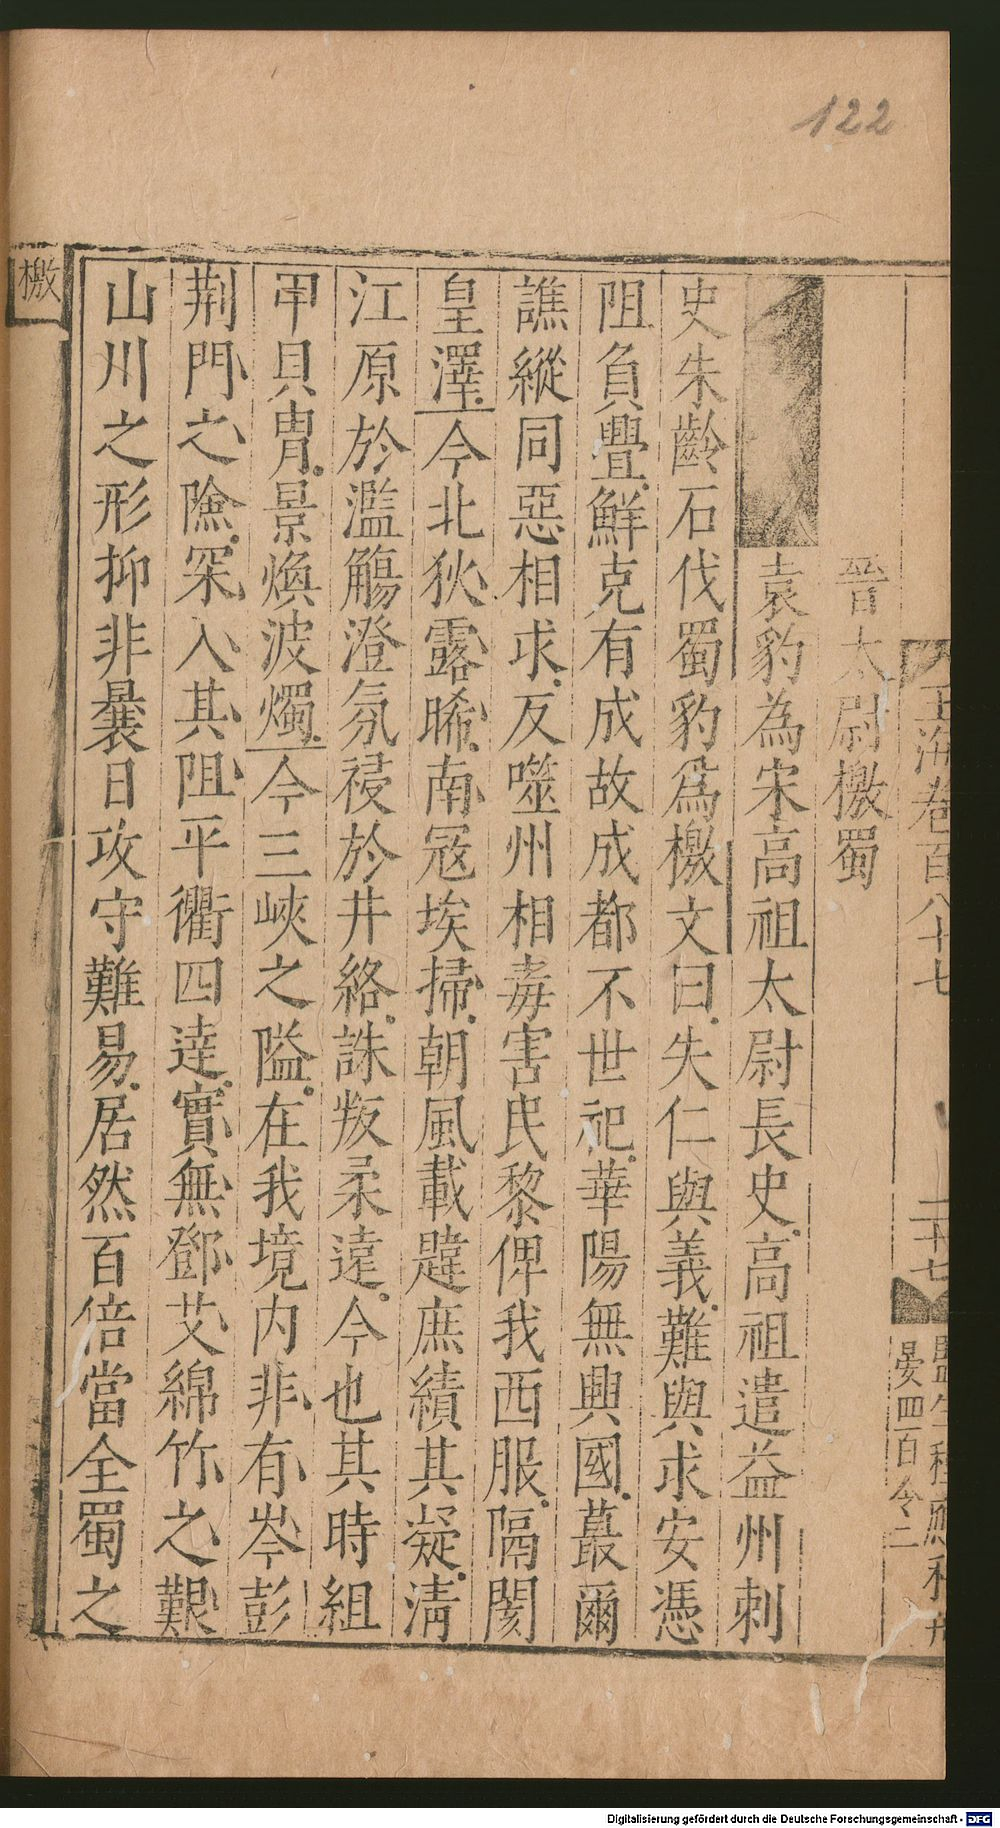 122
玉海卷百八十七
二十七
晏四百令二
晉太尉檄蜀
袁豹為宋高祖太尉長史高祖遣益州刺
史朱齡石伐蜀豹爲檄文曰失仁與義難與求安憑
阻負舋鮮克有成故成都不世祀華陽無興國蕞爾
譙縱同惡相求反噬州相毒害民黎俾我西服隔閡
皇澤今北狄露晞南冦埃掃朝風載韙庶績其凝清
江原於濫觴澄氛祲於井絡誅叛柔遠今也其時組
甲貝胄景煥波燭今三峽之隘在我境内非有岑彭
荆門之險罙入其阻平衢四達實無鄧艾綿竹之艱
山川之形抑非曩日攻守難易居然百倍當全蜀之
檄
Digitalisierung gefördert durch die Deutsche Forschungsgemeinschaft - DFG